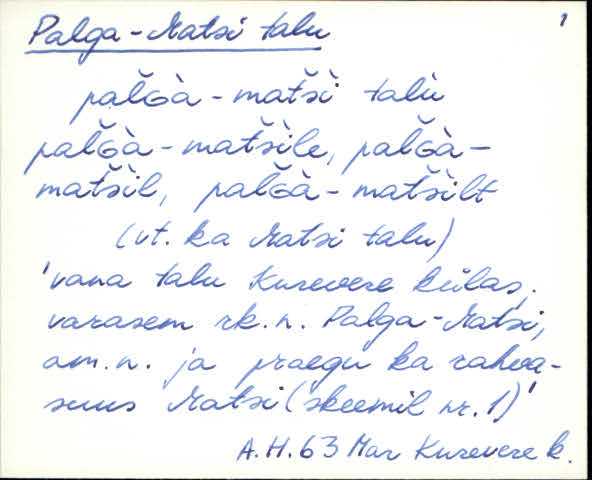 1
Palga-Matsi talu
pal̆ɢà-mat̆sì talù
pal̆ɢà-mat̆sìle, pal̆ɢà-
mat̆sìl, pal̆ɢà-mat̆sìlt
(vt. ka Matsi talu)
'vana talu Kurevere külas,
varasem rk. n. Palga-Matsi,
am. n. ja praegu ka rahva-
suus Matsi (skeemil nr. 1)'
A.H. 63 Mar Kurevere k.